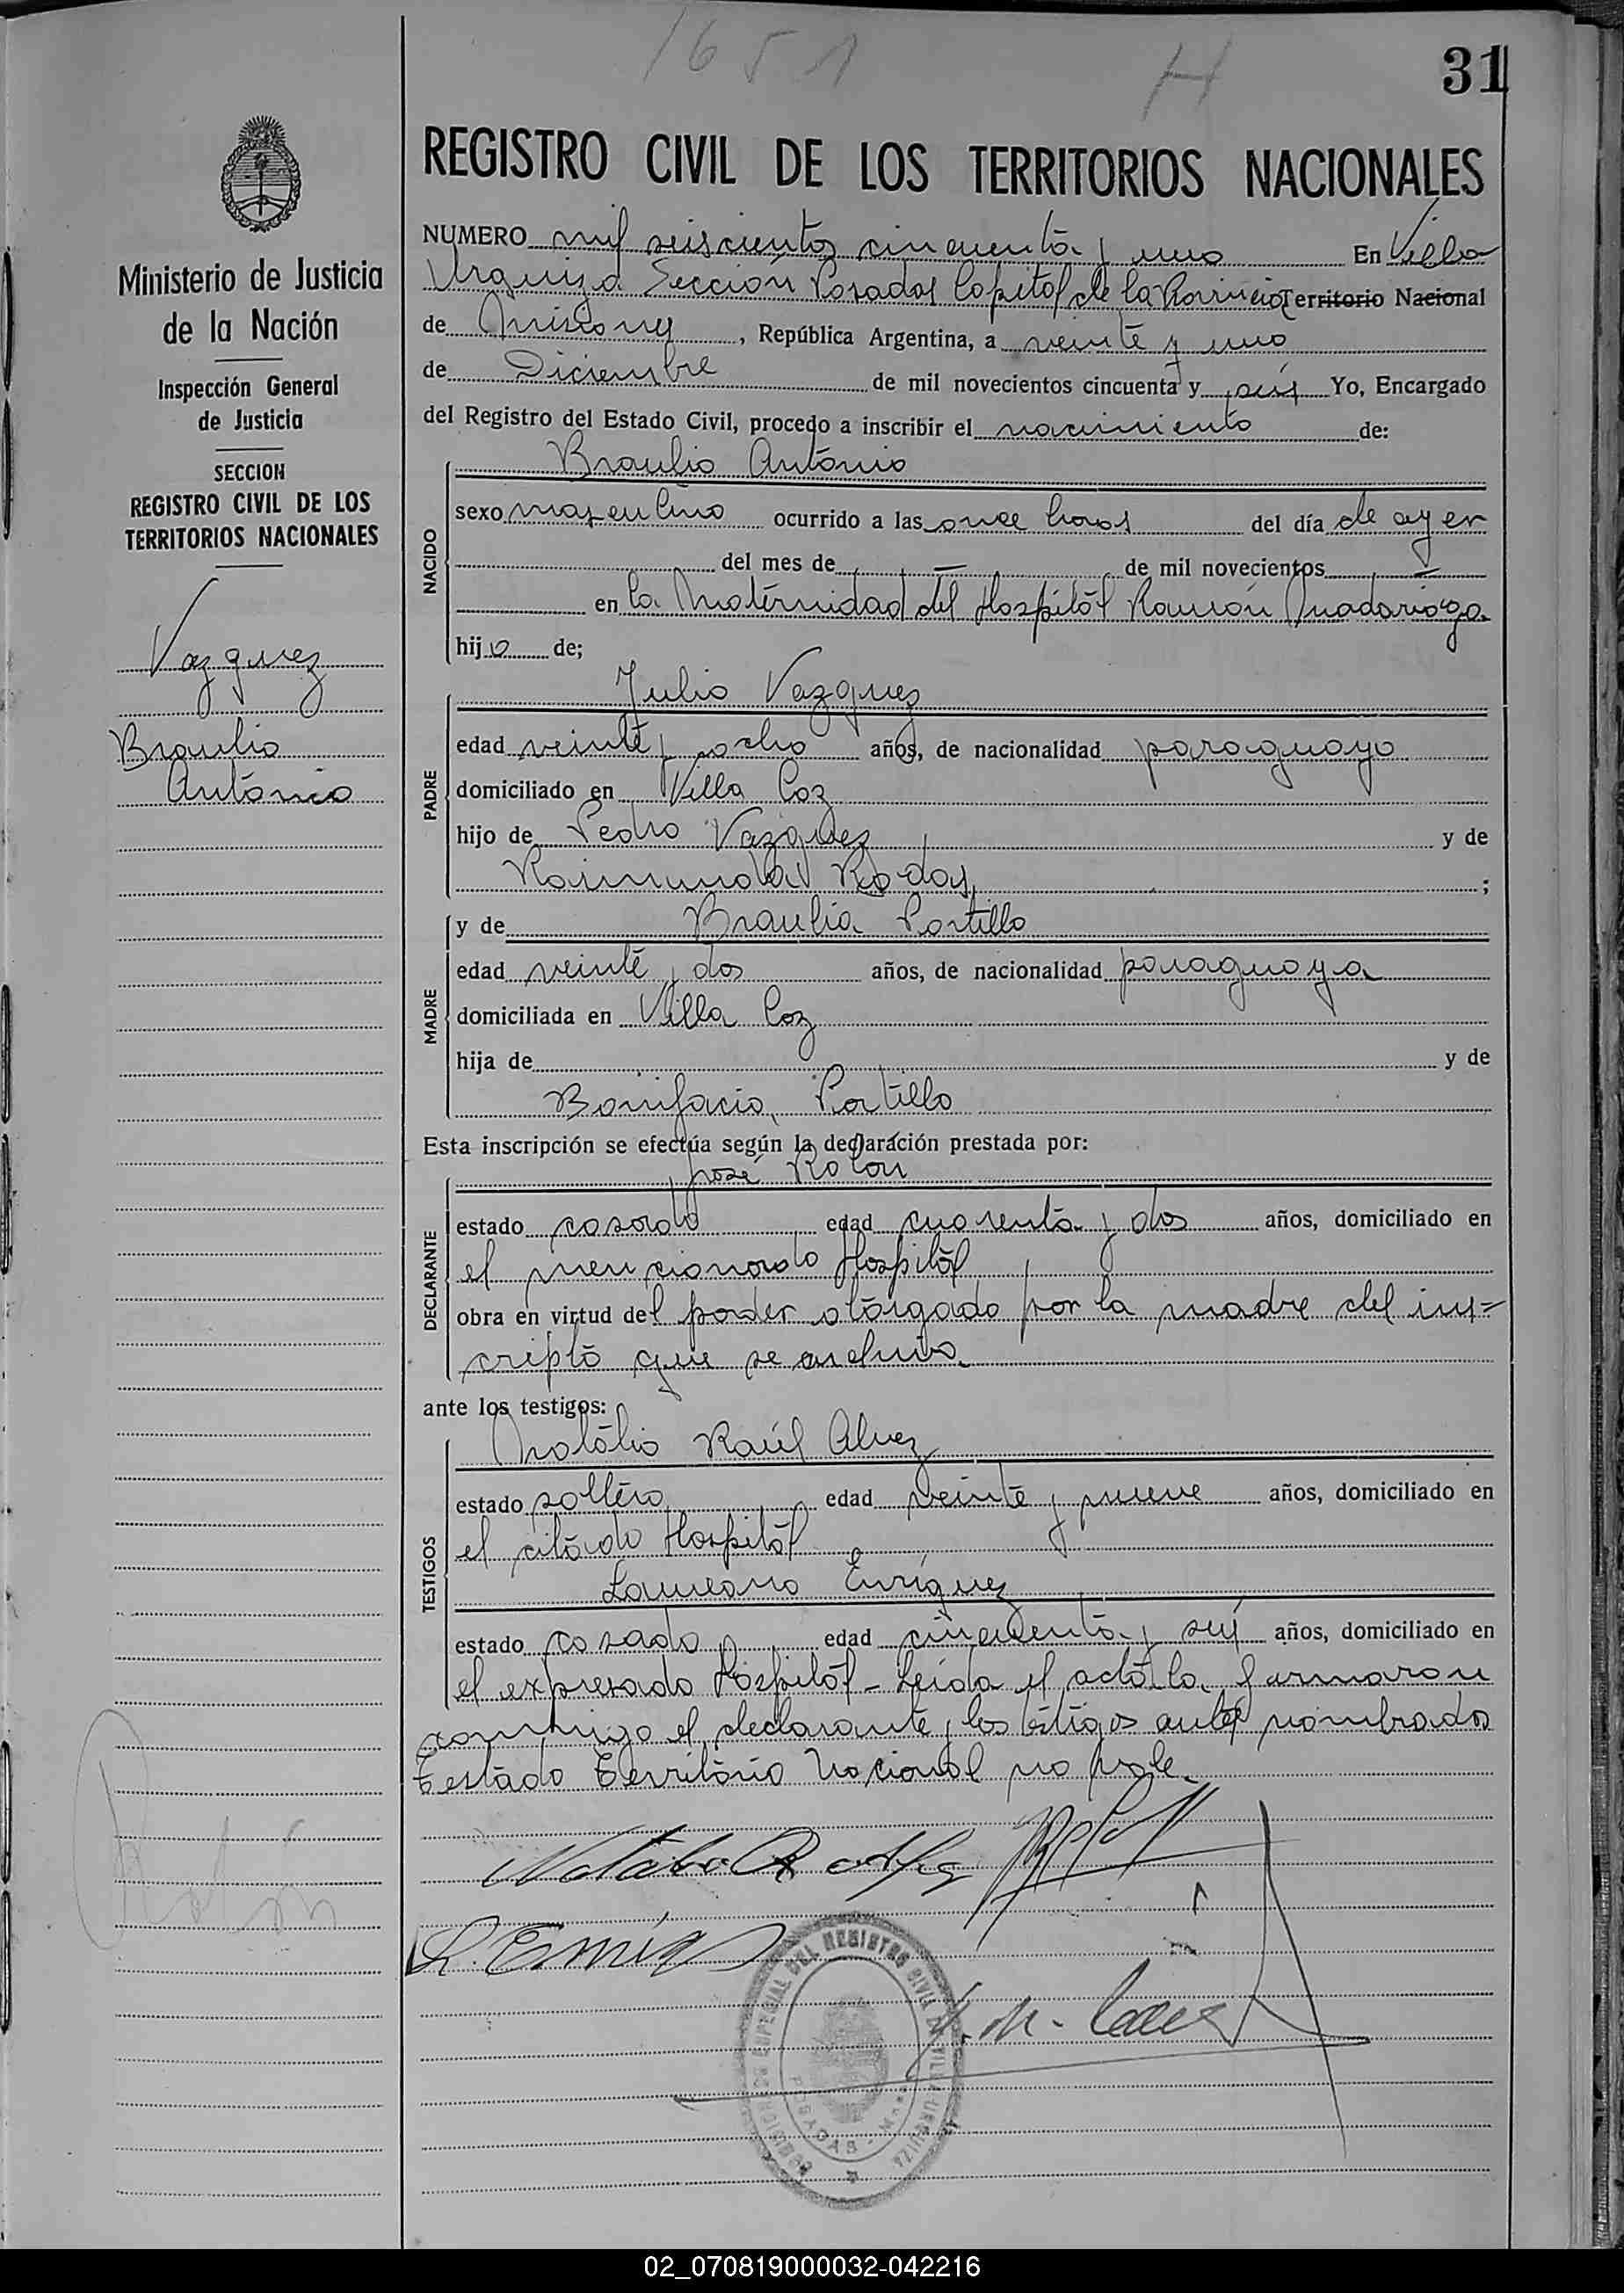 1651 H
31
REGISTRO CIVIL DE LOS TERRITORIOS NACIONALES
Ministerio de Justicia
de la Nación
Inspección General
de Justicia
SECCION
REGISTRO CIVIL DE LOS
TERRITORIOS NACIONALES
Vazquez
Braulio
Antonio
NUMERO mil seiscientos cincuenta y uno En Villa
Urquiza Sección Posadas Capital de la Provincia Territorio Nacional
de Misiones, República Argentina, a veinte y uno
de Diciembre de mil novecientos cincuenta y seis Yo, Encargado
del Registro del Estado Civil, procedo a inscribir el nacimiento de:
NACIDO
Braulio Antonio
sexo masculino ocurrido a las once horas del día de ayer
del mes de — de mil novecientos —
en la Maternidad del Hospital Ramón Madariaga
hijo de;
PADRE
Julio Vazquez
edad veinte y ocho años, de nacionalidad paraguayo
domiciliado en Villa Coz
hijo de Pedro Vazquez y de
Raimunda Rodas;
MADRE
y de Braulia Portillo
edad veinte y dos años, de nacionalidad paraguaya
domiciliada en Villa Coz
hija de y de
Bonifacia Portillo
Esta inscripción se efectúa según la declaración prestada por:
DECLARANTE
José Rolon
estado casado edad cuarenta y dos años, domiciliado en
el mencionado Hospital
obra en virtud del poder otorgado por la madre del ins-
cripto que se archiva.
ante los testigos:
TESTIGOS
Natalio Raúl Alvez
estado soltero edad veinte y nueve años, domiciliado en
el citado Hospital
Laureano Enriquez
estado casado edad cincuenta y seis años, domiciliado en
el expresado Hospital - Leída el acta la firmaron
conmigo el declarante y los testigos antes nombrados
Testado Territorio Nacional no vale.
Natalio R Alvez
L. Enriquez
Rolón
POSADAS
02_070819000032-042216